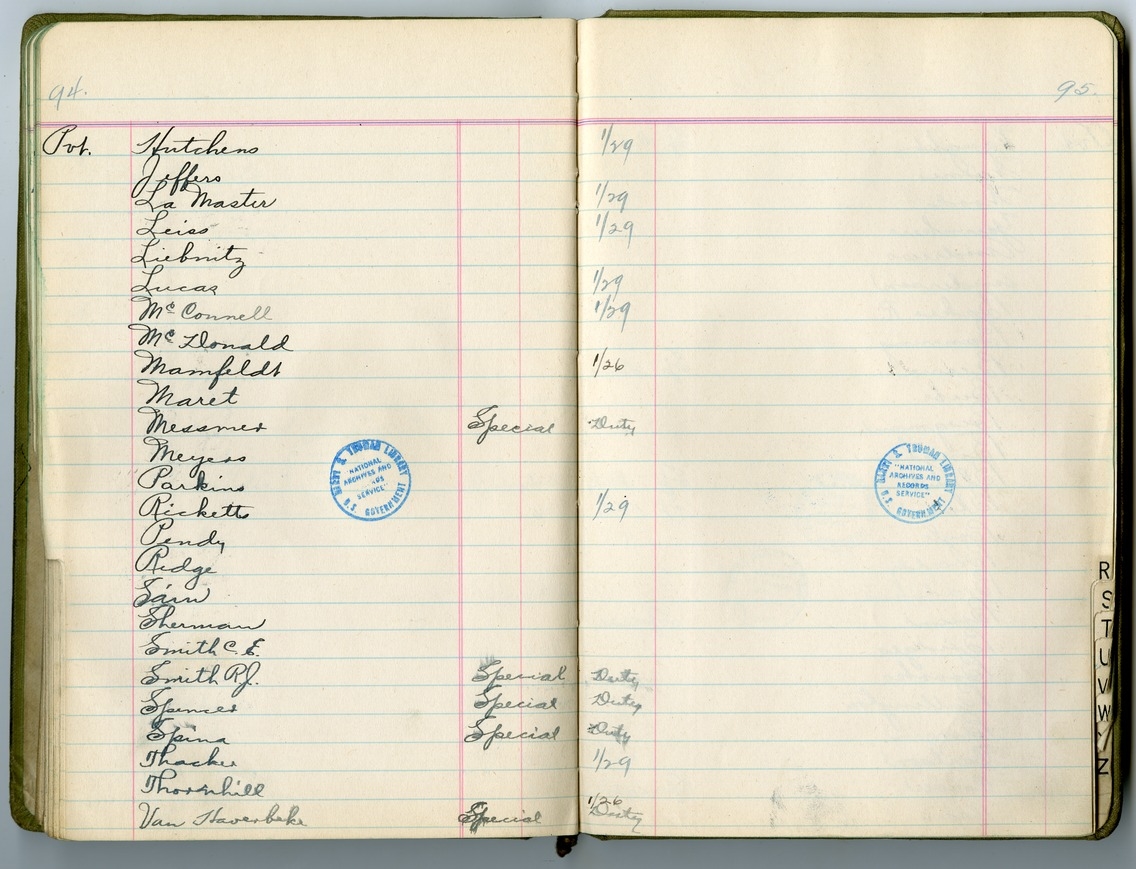 94. 95.
Pvt. Hutchens 1/29
Joffers
La Master 1/29
Leiss 1/29
Liebnitz
Lucas 1/29
Mc Connell 1/29
Mc Donald
Mamfeldt 1/26
Maret
Messmer Special Duty
Meyers
Parkins
Ricketts 1/29
Pendy
Ridge
Sherman
Smith C. E.
Smith R.J. Special Duty
Spencer Special Duty
Spina Special Duty
Thacker 1/29
Thornhill
1/26
Van Haverbeke Special Duty
HARRY S. TRUMAN LIBRARY
"NATIONAL
ARCHIVES AND
SERVICE"
U.S. GOVERNMENT
HARRY S. TRUMAN LIBRARY
"NATIONAL
ARCHIVES AND
RECORDS
SERVICE"
U.S. GOVERNMENT
R
S
T
U
V
W
Y
Z